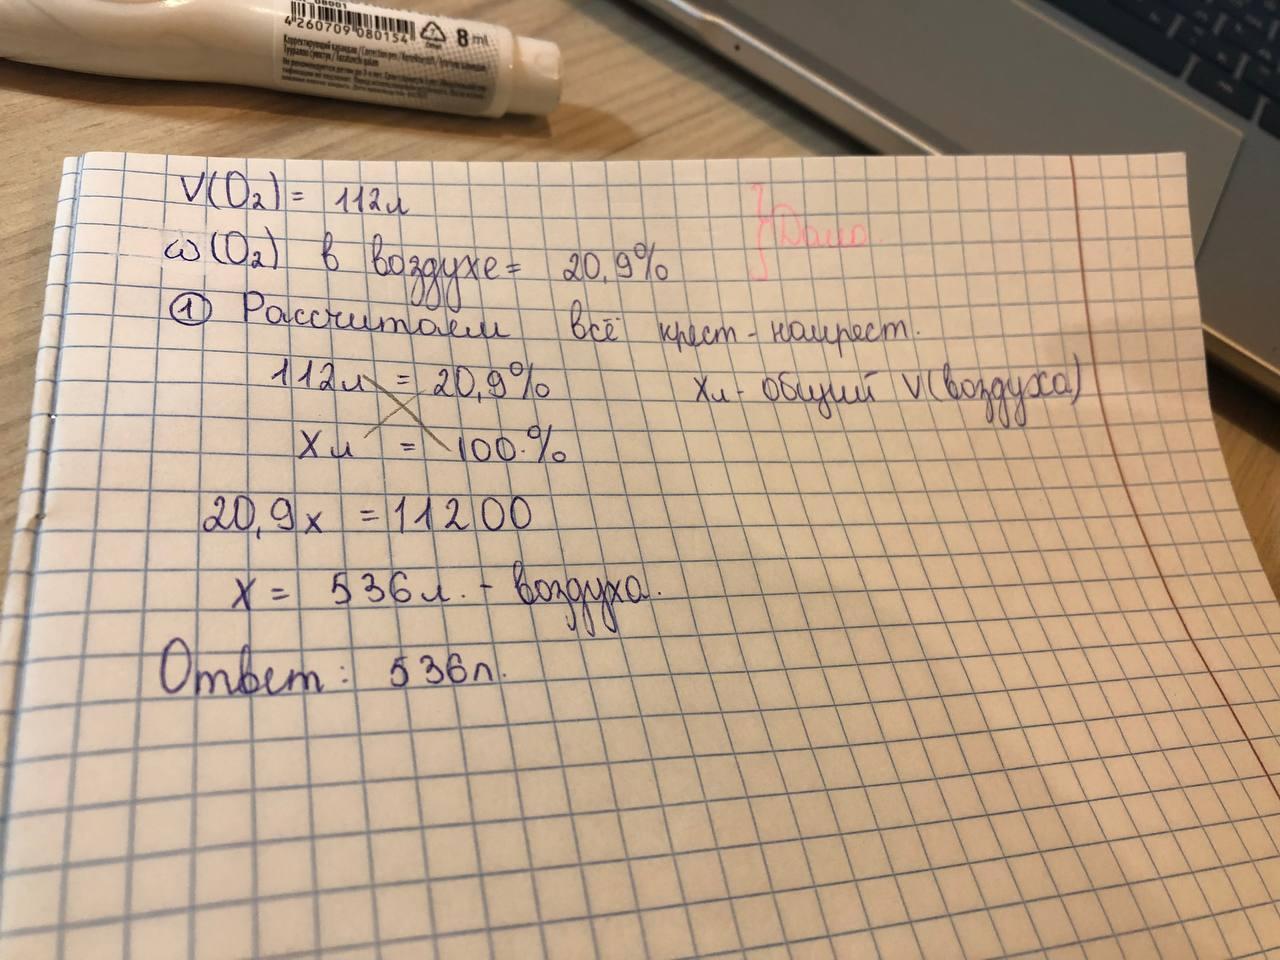 4260709080154
8 ml
Корректирующий карандаш / Correction pen /
V(O₂) = 112л
ω(O₂) в воздухе = 20,9%
} Дано.
① Рассчитаем всё крест-накрест.
112л = 20,9% xл - общий V(воздуха)
xл = 100%
20,9x = 11200
x = 536л. - воздуха.
Ответ: 536л.